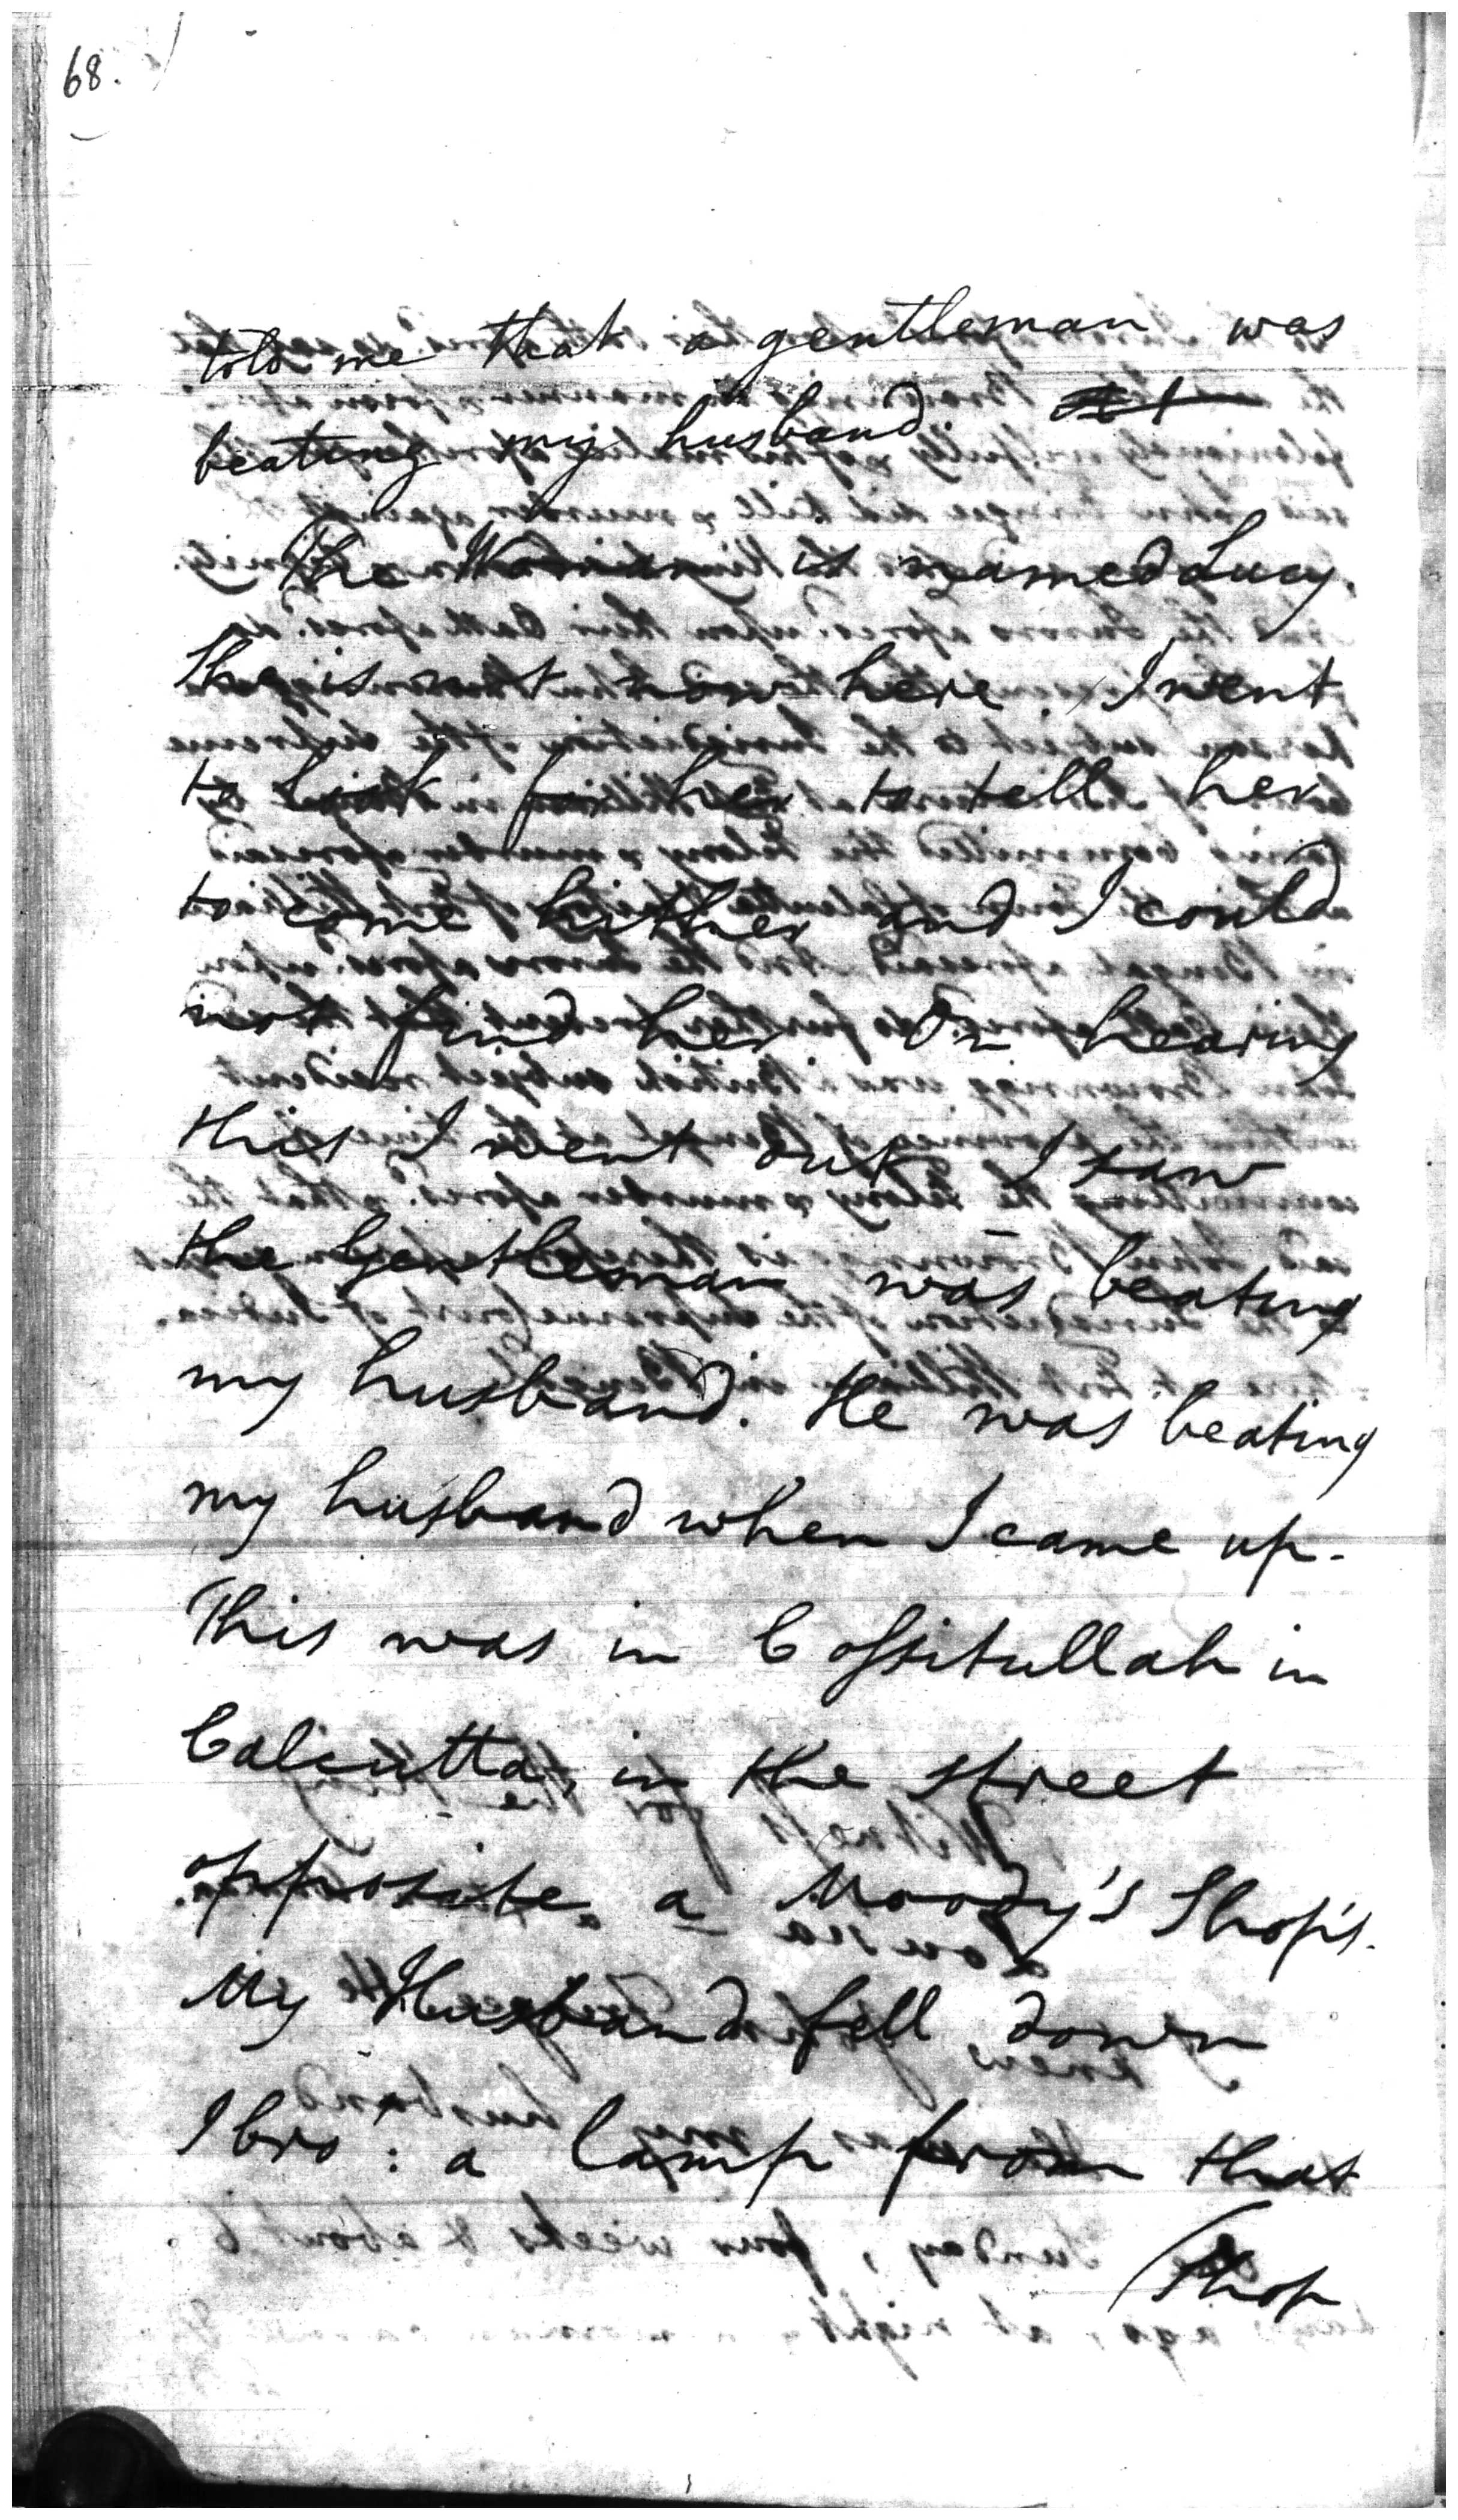 68.
told me that a gentleman was
beating my husband.
The Woman is named Lucy,
She is not now here, I went
to look for her to tell her
to come hither and I could
not find her On hearing
this I went out I saw
the Gentleman was beating
my husband. He was beating
my husband when I came up.
This was in Cossitullah in
Calcutta, in the street
opposite a Moody's Shop's.
My Husband fell down
I bro: a lamp from that
Shop